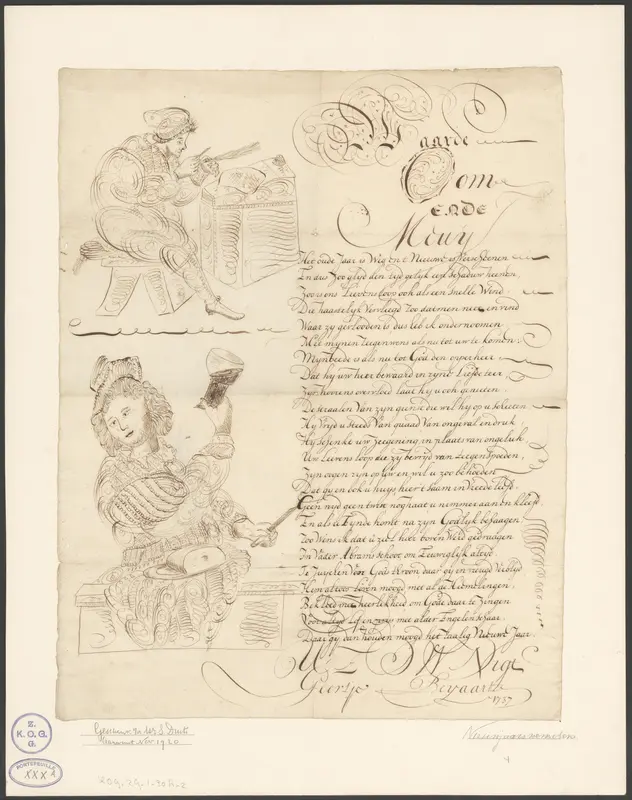 Waarde
Oom
ENDE
Meuy
Het oude Jaar is Weg en t Nieuwe is Verscheenen
En dus Zoo glijd den tyd gelyk een schaduw heenen
Zoo is ons Leevens loop ook als een snelle Wind
Die haastelyk Vervliegd Zoo dat men niet en vind
Waar zy gevlooden is dus heb ik ondernoomen
Met mynen Zeegenwens als nu tot uw te komen
Myn beede is als nu tot God den opper heer
Dat hy uw heer bewaard in zyne Liefde teer
Zyn heevens overvloed laat hy u ook genieten
De straalen Van zyn gunst die wil hy op u schieten
Hy Vryd u steeds Van quaad Van ongeval en druk
Hy schenke uw Zeegening in plaats van ongeluk
Uw Leevens loop die zy bevryd van teegenspoeden
Zyn oogen zyn op uw en wil u zoo behoeden
Dat gy en ook u huys hier 't saam in Vreede Leeft
Geen nyd geen twist nog haat u nimmer aan en kleeft
En als 't Eynde komt na zyn Godlyk behaagen
Zoo Wens ik dat u ziel hier boven Werd gedraagen
In Vader Abrams schoot om Eeuwiglyk altyd
Te Juychen Voor Gods throon daar gy in vreugd Verblyd
Hem altoos Looven moogd met al de Hemelingen
Bekleed met heerlekheid om Gode daar te Zingen
Voor altyd Lof en prys met alder Engelen schaar
Daar gy dan houden moogd het zaalig Nieuwe Jaar
U E D W Nigt
Geertje Beyaart
1737
Z.
K.O.G.
G.
PORTEFEUILLE
XXX A
Nov 1920
4